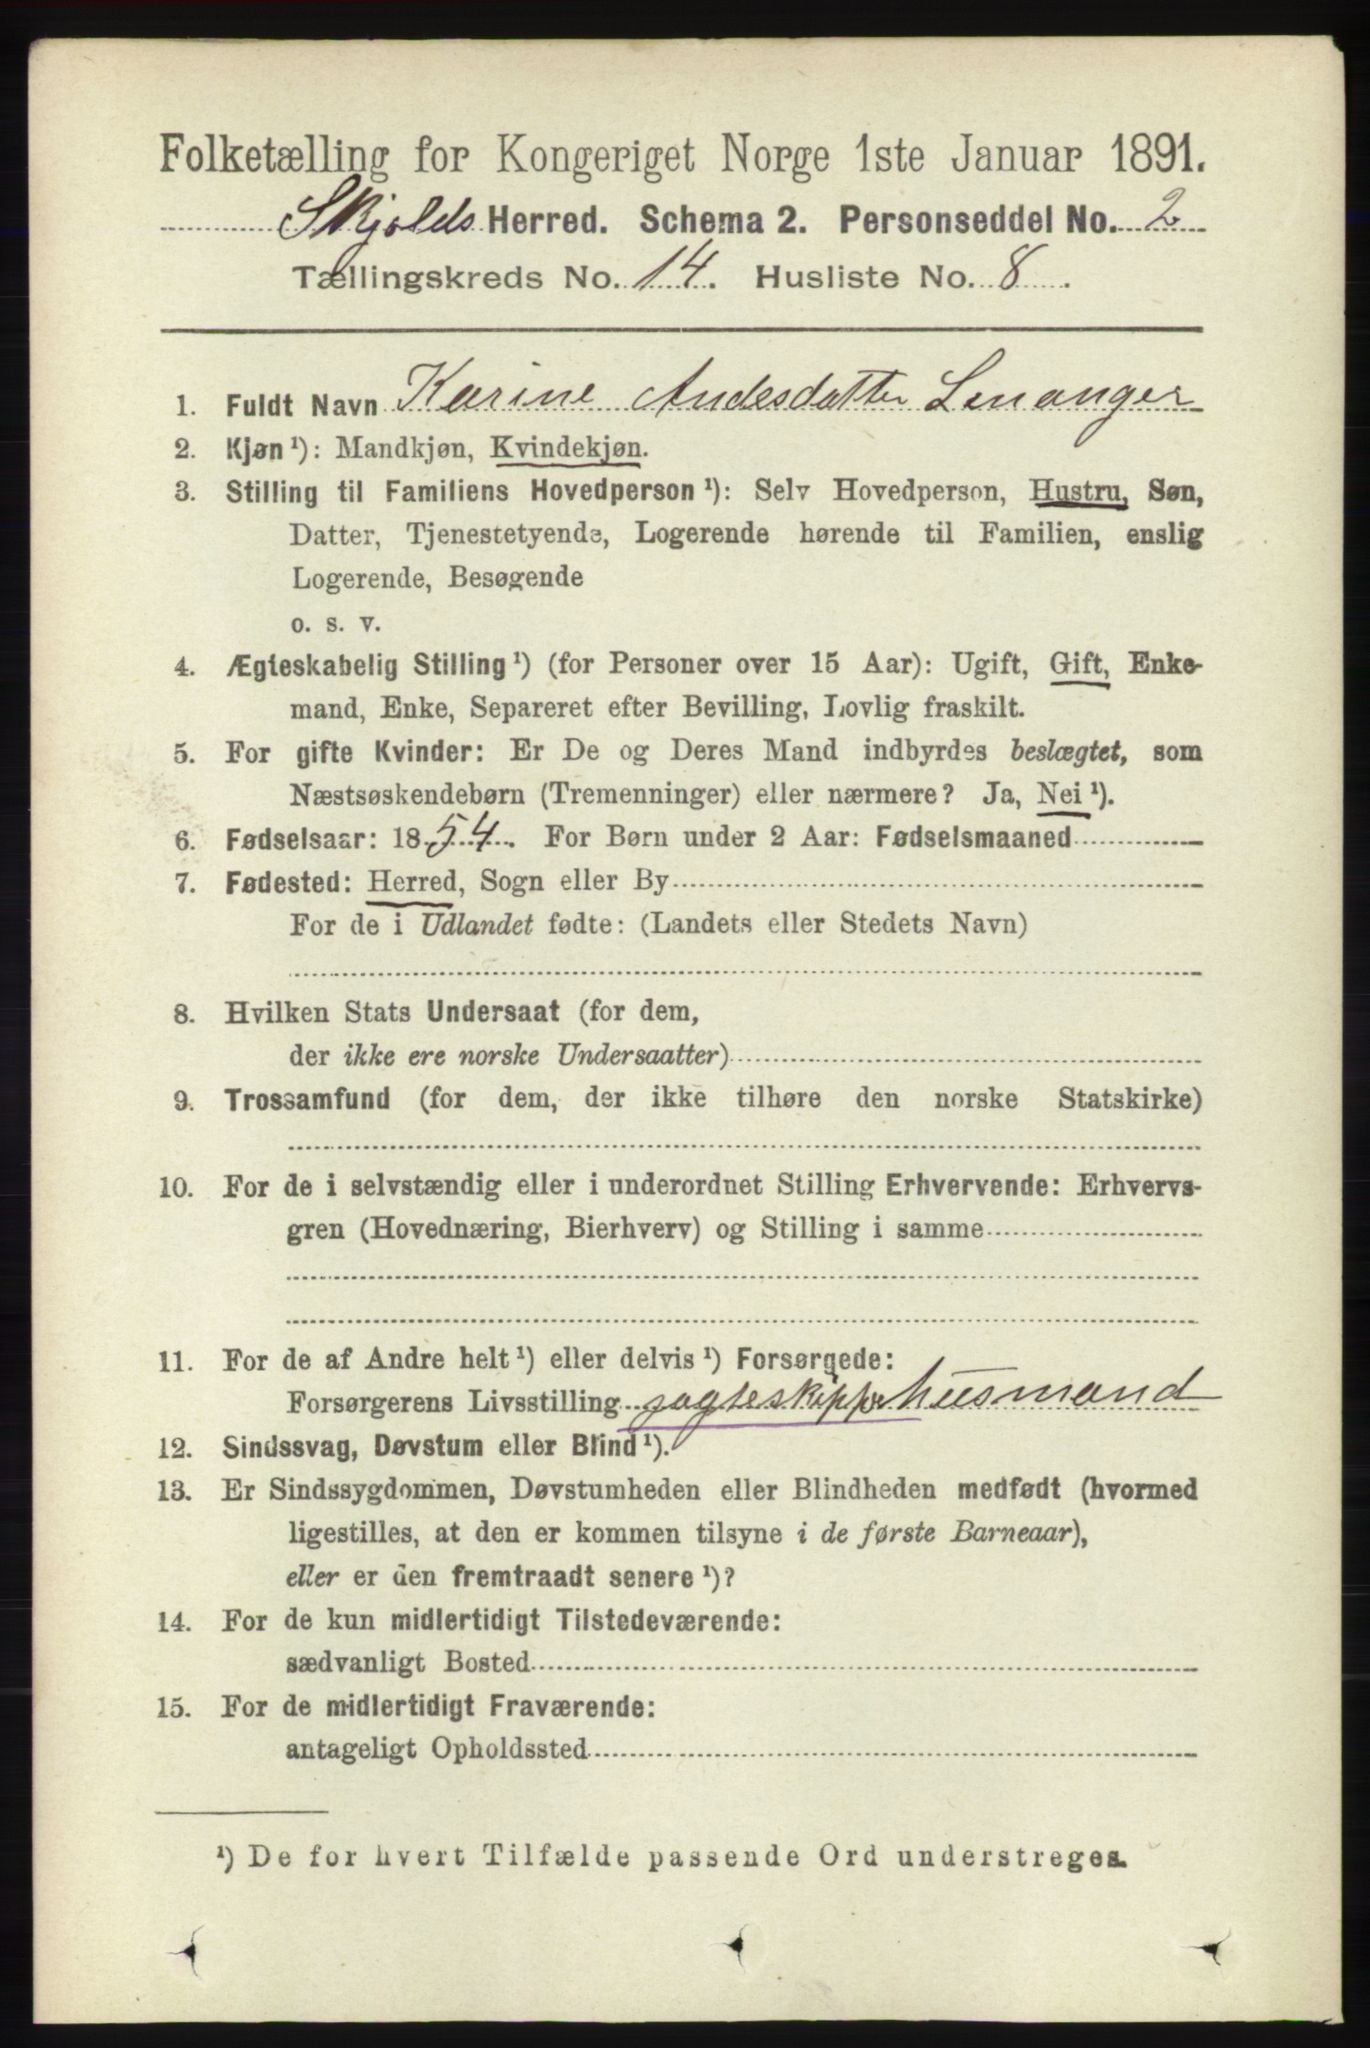 Folketælling for Kongeriget Norge 1ste Januar 1891.
Skjolds Herred. Schema 2. Personseddel No. 2
Tællingskreds No. 14. Husliste No. 8.
1. Fuldt Navn Karine Andesdatter
2. Kjøn ¹): Mandkjøn, Kvindekjøn.
3. Stilling til Familiens Hovedperson ¹): Selv Hovedperson, Hustru, Søn,
Datter, Tjenestetyende, Logerende hørende til Familien, enslig
Logerende, Besøgende
o. s. v.
4. Ægteskabelig Stilling ¹) (for Personer over 15 Aar): Ugift, Gift, Enke-
mand, Enke, Separeret efter Bevilling, Lovlig fraskilt.
5. For gifte Kvinder: Er De og Deres Mand indbyrdes beslægtet, som
Næstsøskendebørn (Tremenninger) eller nærmere? Ja, Nei ¹).
6. Fødselsaar: 1854. For Børn under 2 Aar: Fødselsmaaned
7. Fødested: Herred, Sogn eller By
For de i Udlandet fødte: (Landets eller Stedets Navn)
8. Hvilken Stats Undersaat (for dem,
der ikke ere norske Undersaatter)
9. Trossamfund (for dem, der ikke tilhøre den norske Statskirke)
10. For de i selvstændig eller i underordnet Stilling Erhvervende: Erhvervs-
gren (Hovednæring, Bierhverv) og Stilling i samme
11. For de af Andre helt ¹) eller delvis ¹) Forsørgede:
Forsørgerens Livsstilling jagteskipper husmand
12. Sindssvag, Døvstum eller Blind ¹).
13. Er Sindssygdommen, Døvstumheden eller Blindheden medfødt (hvormed
ligestilles, at den er kommen tilsyne i de første Barneaar),
eller er den fremtraadt senere ¹)?
14. For de kun midlertidigt Tilstedeværende:
sædvanligt Bosted
15. For de midlertidigt Fraværende:
antageligt Opholdssted
¹) De for hvert Tilfælde passende Ord understreges.